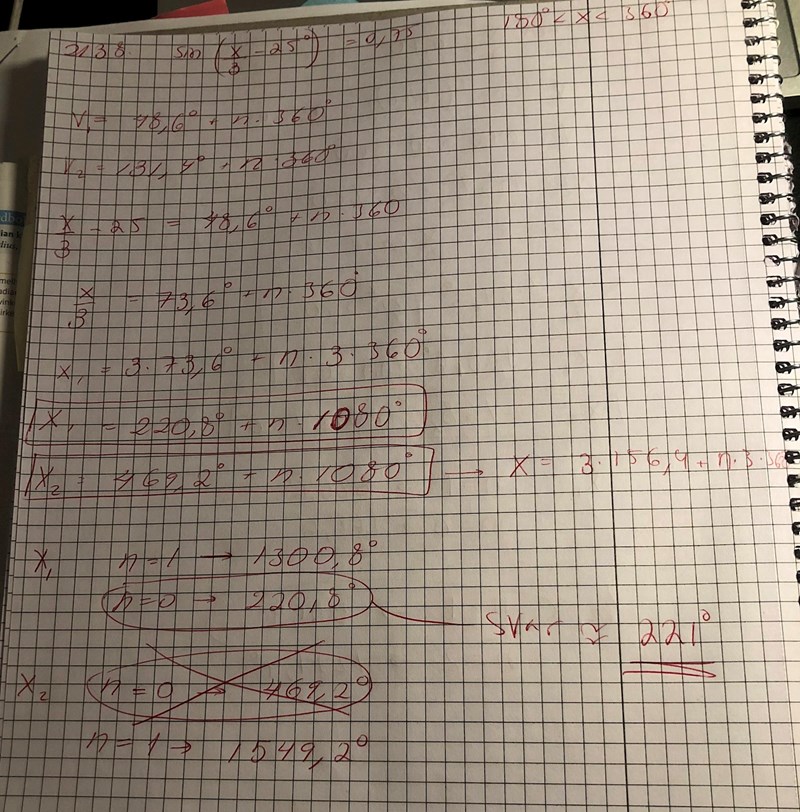 2138. sin (x/3 - 25°) = 0,75 180° < x < 360°
V₁ = 48,6° + n · 360°
V₂ = 131,4° + n · 360°
x/3 - 25 = 48,6° + n · 360
x/3 = 73,6° + n · 360°
x₁ = 3 · 73,6° + n · 3 · 360°
x₁ = 220,8° + n · 1080°
x₂ = 469,2° + n · 1080° → x = 3 · 156,4 + n · 3 · 360
x₁ n = 1 → 1300,8°
n = 0 → 220,8°
Svar ≈ 221°
x₂ n = 0 → 469,2°
n = 1 → 1549,2°